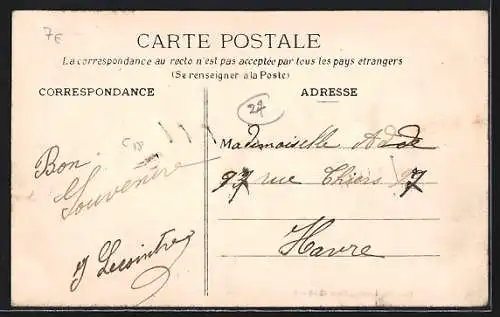 7E
CARTE POSTALE
La correspondance au recto n'est pas acceptée par tous les pays étrangers
(Se renseigner à la Poste)
CORRESPONDANCE
ADRESSE
24
Bon
Souvenire
J Lecointre
Mademoiselle
97 rue Thiers 97
Havre